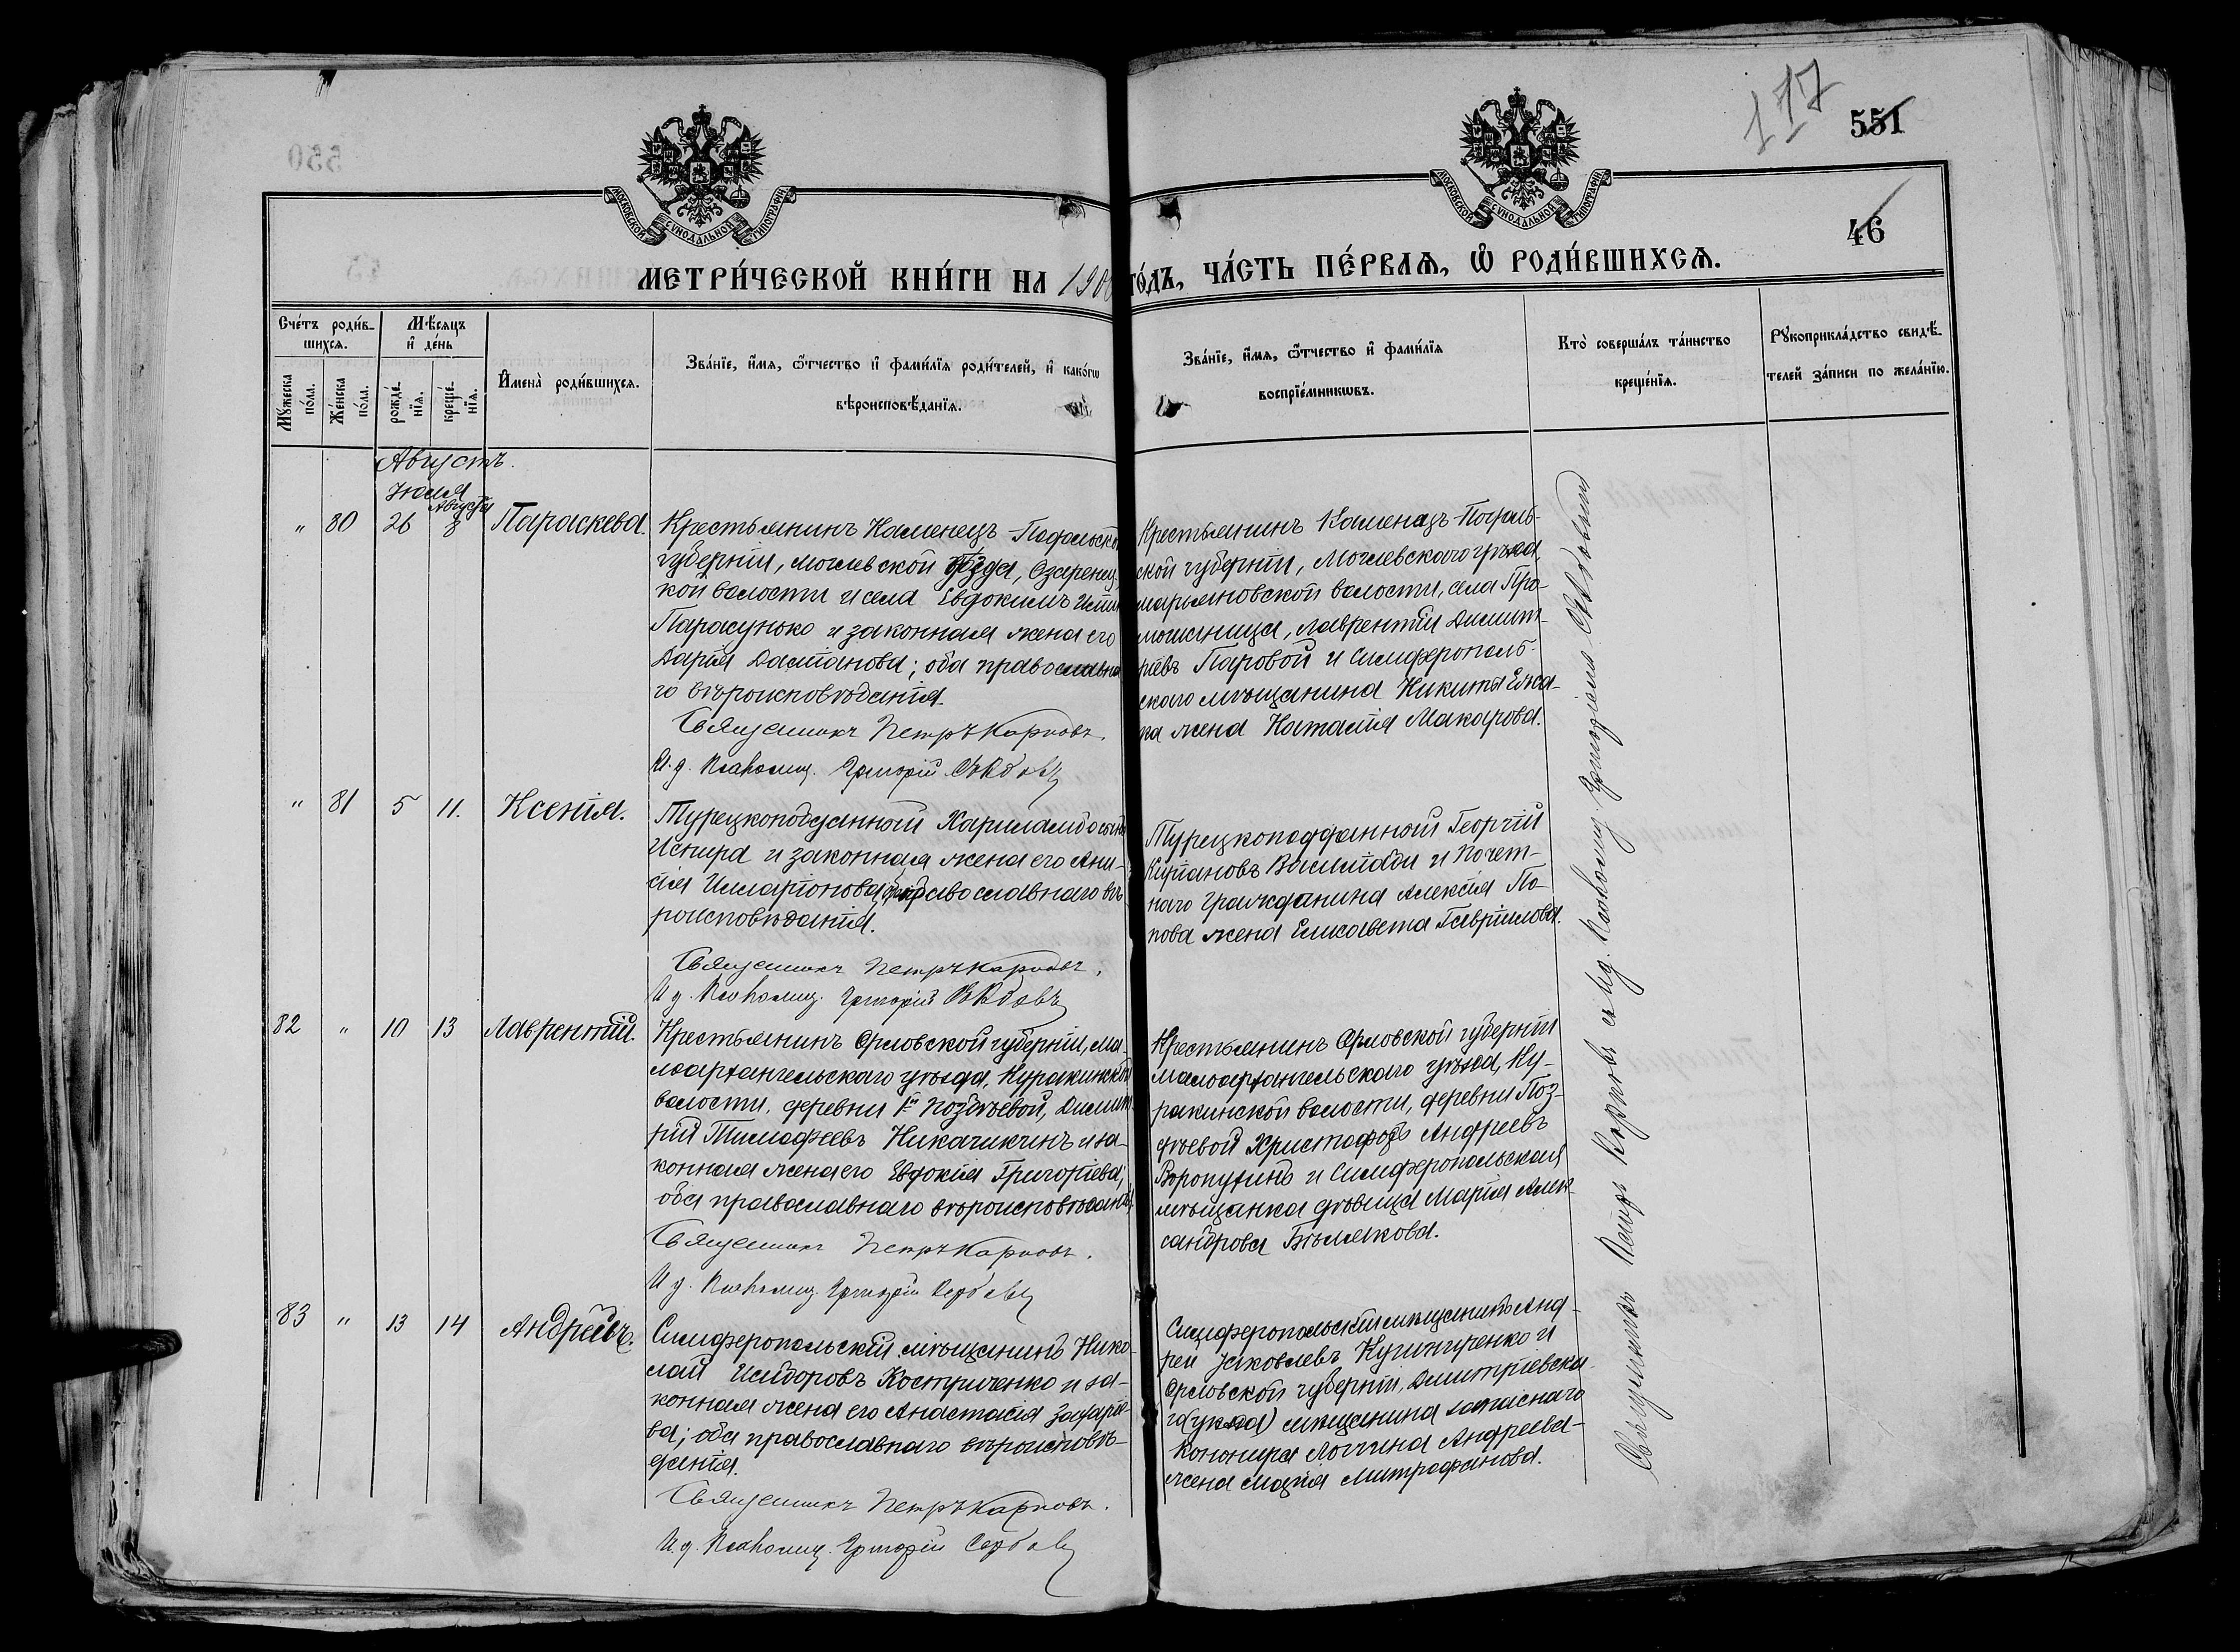 117
551
46
МОСКОВСКОЙ СѴНОДАЛЬНОЙ ТИПОГРАФІИ
МОСКОВСКОЙ СѴНОДАЛЬНОЙ ТИПОГРАФІИ
МЕТРИ́ЧЕСКОЙ КНИ́ГИ НА 190
ГО́ДЪ, ЧА́СТЬ ПЕ́РВАѦ, Ѽ РОДИ́ВШИХСѦ.
Сче́тъ роди́в-
шихсѧ.
Мꙋжеска по́ла.
Же́нска по́ла.
Мѣ́сѧцъ
и҆ де́нь
рожде́нїѧ.
креще́нїѧ.
И҆мена̀ роди́вшихсѧ.
Зва́нїе, и҆́мѧ, ѻ҆́тчество и҆ фами́лїѧ роди́телей, и҆ како́гѡ
вѣроисповѣ́данїѧ.
Зва́нїе, и҆́мѧ, ѻ҆́тчество и҆ фами́лїѧ
воспрїе́мникѡвъ.
Кто̀ соверша́лъ та́инство
креще́нїѧ.
Рꙋкоприкла́дство свидѣ́-
телей за́писи по жела́нїю.
Августъ.
Іюля
Августа
" 80 26 8 Параскева.
Крестьянинъ Каменецъ-Подольско
губерніи, Могилевской уѣзда, Озаренец
кой волости и села Евдокимъ
Парасунько и законная жена его
Дарія Даміанова; оба православна
го вѣроисповѣданія.
Священникъ Петръ Карповъ.
И. д. Псаломщ. Григорій
Крестьянинъ Каменецъ-Подоль-
ской губерніи, Могилевскаго уѣзда
марьяновской волости, села
Лаврентій Димит-
ріевъ Паровой и Симферополь-
скаго мѣщанина Никиты
жена Наталія Макарова.
" 81 5 11. Ксенія.
Турецкоподданный
и законная жена его Ани-
сія Илларіонова, православнаго вѣ
роисповѣданія.
Священникъ Петръ Карповъ.
И. д. Псаломщ. Григорій
Турецкоподданный Георгій
и Почет-
наго Гражданина Алексія По-
пова жена Елисавета Гавріилова.
82 " 10 13 Лаврентій.
Крестьянинъ Орловской губерніи, Ма-
лоархангельскаго уѣзда, Куракинской
волости, деревни 1й Поздѣевой, Димит
рій Тимофеевъ Никачикинъ и за-
конная жена его Евдокія Григоріева;
оба православнаго вѣроисповѣданія.
Священникъ Петръ Карповъ.
И. д. Псаломщ. Григорій
Крестьянинъ Орловской губерніи
Малоархангельскаго уѣзда, Ку-
ракинской волости, деревни Поз-
дѣевой Христофоръ Андреевъ
и Симферопольская
мѣщанка дѣвица Марія Алек-
сандрова Бѣлякова.
83 " 13 14 Андрей.
Симферопольскій мѣщанинъ Нико-
лай Исидоровъ Костриченко и за-
конная жена его Анастасія Захаріе
ва; оба православнаго вѣроисповѣ-
данія.
Священникъ Петръ Карповъ.
И. д. Псаломщ. Григорій
Симферопольскій мѣщанинъ Анд-
рей Іаковлевъ и
Орловской губерніи, Димитріевска
го (уѣзда) мѣщанина запаснаго
Логгина Андреева
жена Марія Митрофанова.
Священникъ Петръ Карповъ съ И. д. Псаломщ. Григоріемъ